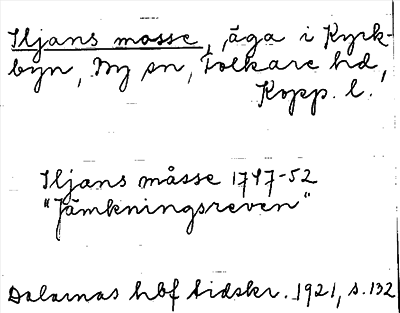 Iljans mosse, äga i Kyrk-
byn, By sn, Folkare hd,
Kopp. l.
Iljans måsse 1747-52
"Jämkningsreven"
Dalarnas hbf tidskr. 1921, s. 132